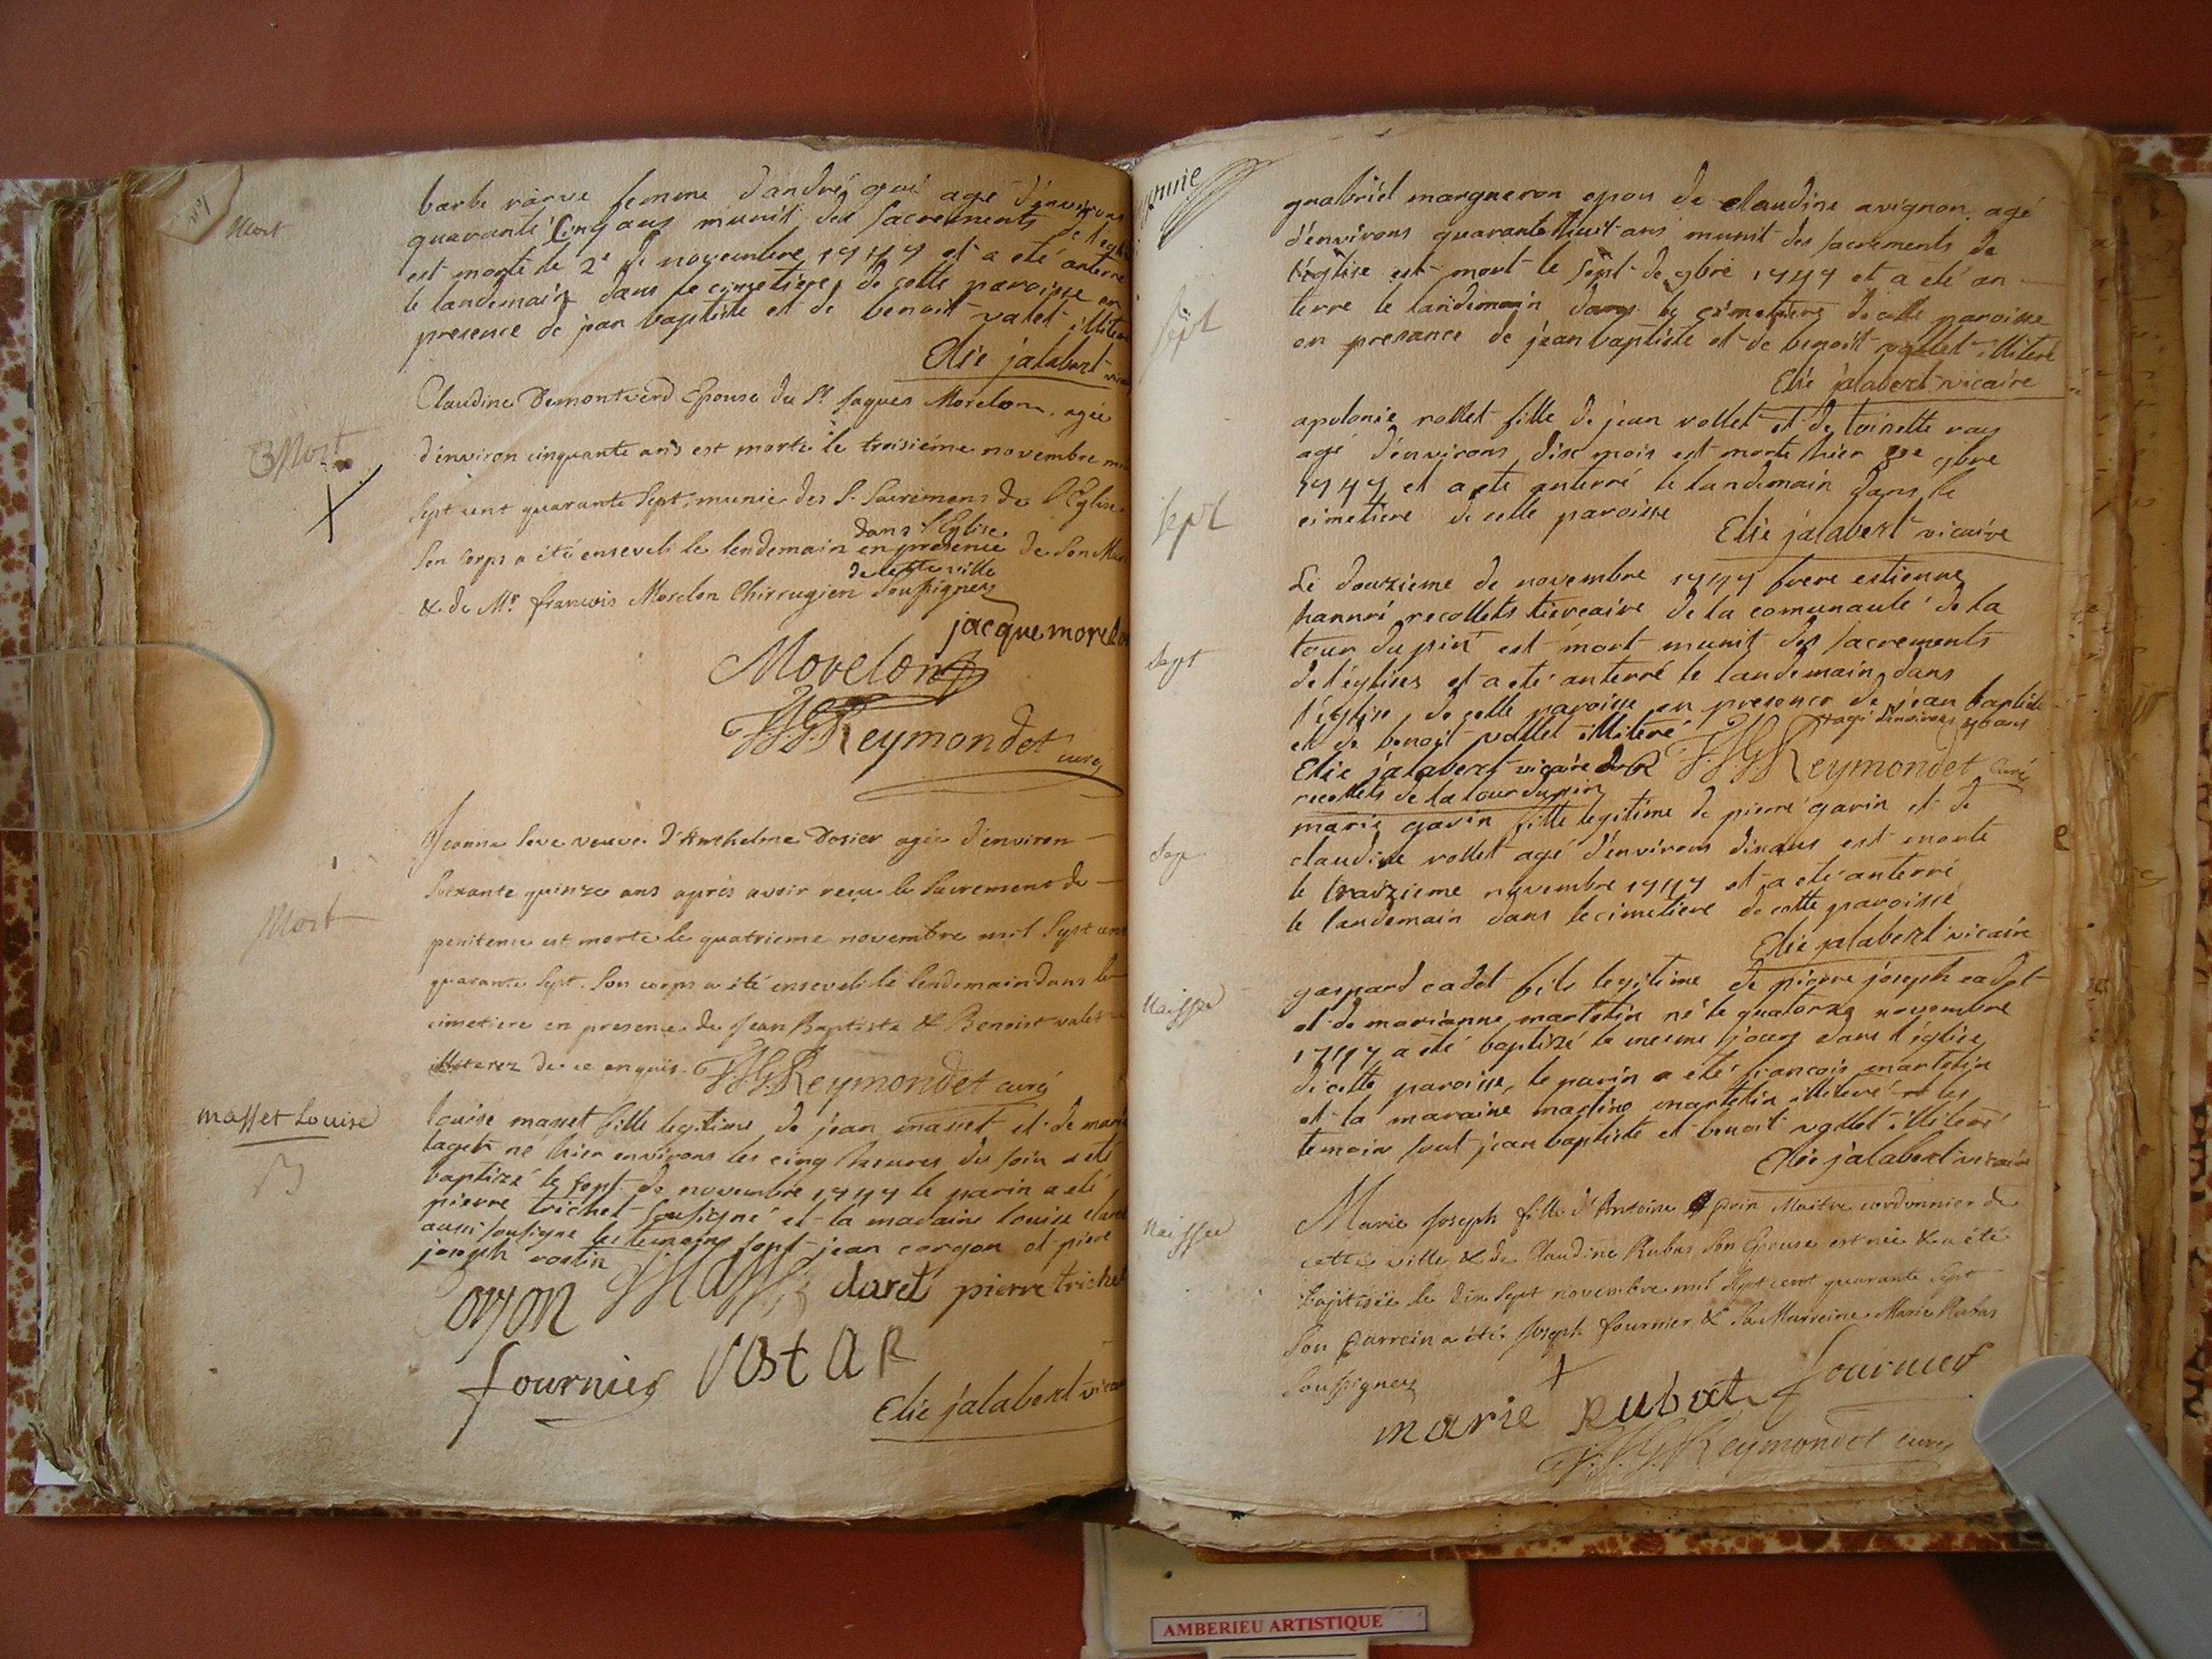 Mort
barbe femme d'andré agé d'environs
quarante Cinq ans munit des sacrements de l'egli
est morte le 2e de novembre 1747 et a eté anterré
le landemain dans le cimetiere de cette paroisse en
presence de jean baptiste et de benoit valet illiteré
Elie jalabert
3 Mort
Claudine Demontverd Epouse du Sr Jaques Morelon. agée
d'environ cinquante ans est morte le troisiéme novembre
Sept cent quarante Sept, munie des S. Sacremens de l'Eglise.
dans l'Eglise
Son Corps a été enseveli le lendemain en presence de Son
de cette ville
& de Mr françois Morelon Chirrugien Soussignez
jacque morelon
Morelon
Reymondet curé
Mort
Jeanne Seve veuve d'Anthelme Dosier agée d'environ
Soixante quinze ans après avoir reçu le Sacrement de
penitence est morte le quatrieme novembre mil Sept cent
quarante Sept. Son corps a été enseveli le lendemain dans le
cimetiere en presence de Jean Baptiste & Benoist valet
illiterez de ce enquis. Reymondet curé
masset Louise
louise masset fille legitime de jean masset et de marie
né hier environs les cinq heures du soir a eté
baptizé le sept de novembre 1747 le parin a eté
pierre trichet sousigné et la maraine louise claret
aussi sousigne les temoins sont jean et piere
joseph
claret pierre trichet
fournier
Elie jalabert
gnabriel margueron epou de claudine avignon agé
d'environs quarante huit ans munit des sacrements de
l'église est mort le Sept de 9bre 1747 et a eté an
terré le landemain dans le cimetiere de cette paroisse
en presance de jean baptiste et de benoit vallet illiteré
Elie jalabert vicaire
Sept
apolonie rollet fille de jean rollet et de toinette
agé d'environs dix mois est morte hier 9bre
1747 et a eté anterré le landemain dans le
cimetiere de cette paroisse
Elie jalabert vicaire
Sept
Le douzieme de novembre 1747 frere estienne
recollets de la comunauté de la
tour du pin est mort munit des sacrements
de l'églises et a eté anterré le landemain dans
l'église de cette paroisse en presence de jean baptiste
et de benoit vallet illiteré
Elie jalabert vicaire Reymondet Curé
recollets de la tour du pin
marie gavin fille legitime de pierre gavin et de
claudine rollet agé d'environs dix ans est morte
le traizieme novembre 1747 et a eté anterré
le landemain dans le cimetiere de cette paroisse
Elie jalabert vicaire
gaspard cadet fils legitime de pierre joseph cadet
et de marianne martetin né le quatorze novembre
1747 a eté baptizé le mesme jour dans l'église
de cette paroisse, le parin a eté francois martetin
et la maraine martetin illiteré et les
temoin sont jean baptiste et benoit vallet illiteré
Elie jalabert vicaire
Marie Joseph fille d'Antoine Maitre cordonnier de
cette ville & de Claudine Rubat Son Epouse est née & a été
baptisée le dix Sept novembre mil Sept cent quarante Sept
Son Parrein a été Joseph fournier & Sa Marreine Marie Rubat
Soussignez
marie Rubat fournier
Reymondet curé
AMBERIEU ARTISTIQUE